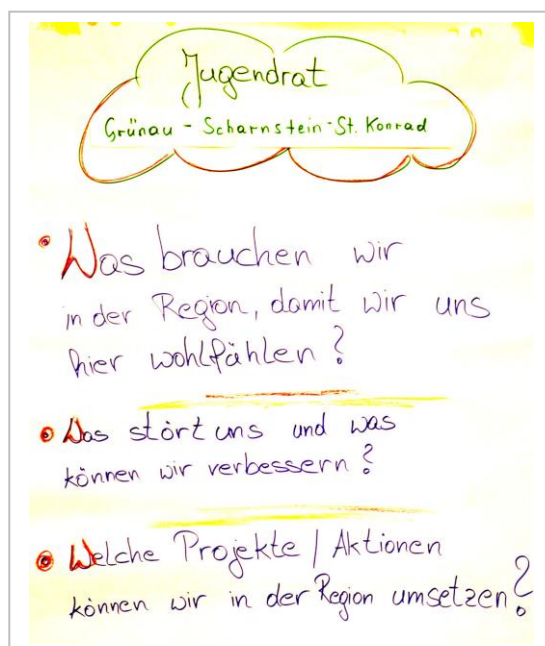 Jugendrat
Grünau - Scharnstein - St. Konrad
Was brauchen wir
in der Region, damit wir uns
hier wohlfühlen?
Was stört uns und was
können wir verbessern?
Welche Projekte / Aktionen
können wir in der Region umsetzen?